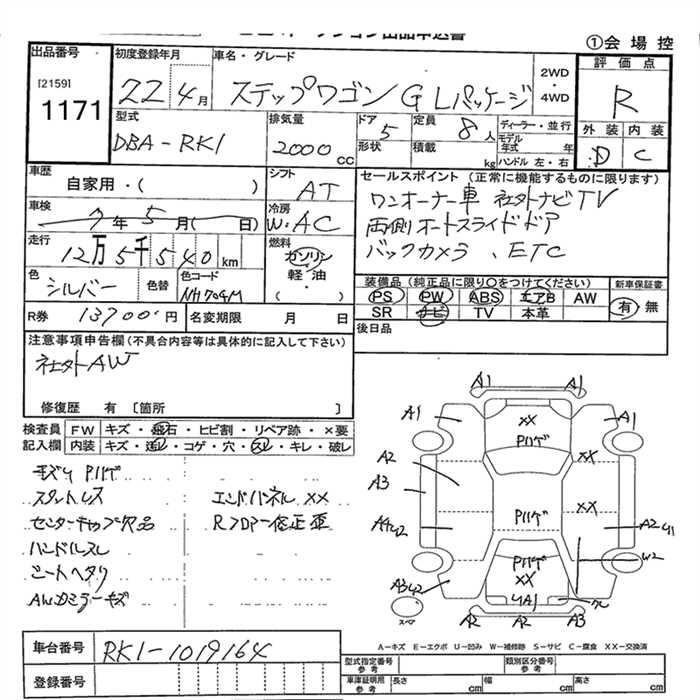 ①会場控
出品番号
[2159]
1171
初度登録年月
22年4月
車名・グレード
ステップワゴン G Lパッケージ
2WD
・
4WD
評価点
R
外装 内装
D C
型式
DBA-RK1
排気量
2000 cc
ドア 5
形状
定員 8人
積載 kg
ディーラー・並行
モデル年式 年
ハンドル 左・右
車歴
自家用・( )
シフト
AT
車検
7年5月( 日)
冷房
W・AC
走行
12万5千540km
燃料
ガソリン
軽・油
・( )
色
シルバー
色替
色コード
NH704M
R券 13700円
名変期限 月 日
セールスポイント (正常に機能するものに限ります)
ワンオーナー車 社外ナビTV
両側オートスライドドア
バックカメラ、ETC
装備品 (純正品に限り○をつけてください)
PS PW ABS エアB AW
SR ナビ TV 本革
新車保証書
有・無
後日品
注意事項申告欄 (不具合内容等は具体的に記入して下さい)
社外AW
修復歴 有 [箇所 ]
検査員 FW キズ・飛石・ヒビ割・リペア跡・×要
記入欄 内装 キズ・汚レ・コゲ・穴・スレ・キレ・破レ
キズ P ハゲ
スタットレス
センターキャップ欠品
ハンドルスレ
シートヘタリ
AWガミラーキズ
エンドパネル XX
Rフロアー修正歪
A1 A1
A1 XX A1
Pハゲ
XX
A2
A3
Pハゲ XX
A4U2 A2U1
Pハゲ W2
XX
A3U2 U1A1
A2 A2 A3
スペア
A-キズ E-エクボ U-凹み W-補修跡 S-サビ C-腐食 XX-交換済
車台番号 RK1-1019164
登録番号
型式指定番号 参考
類別区分番号 参考
車庫証明用 参考 長さ cm 幅 cm 高さ cm